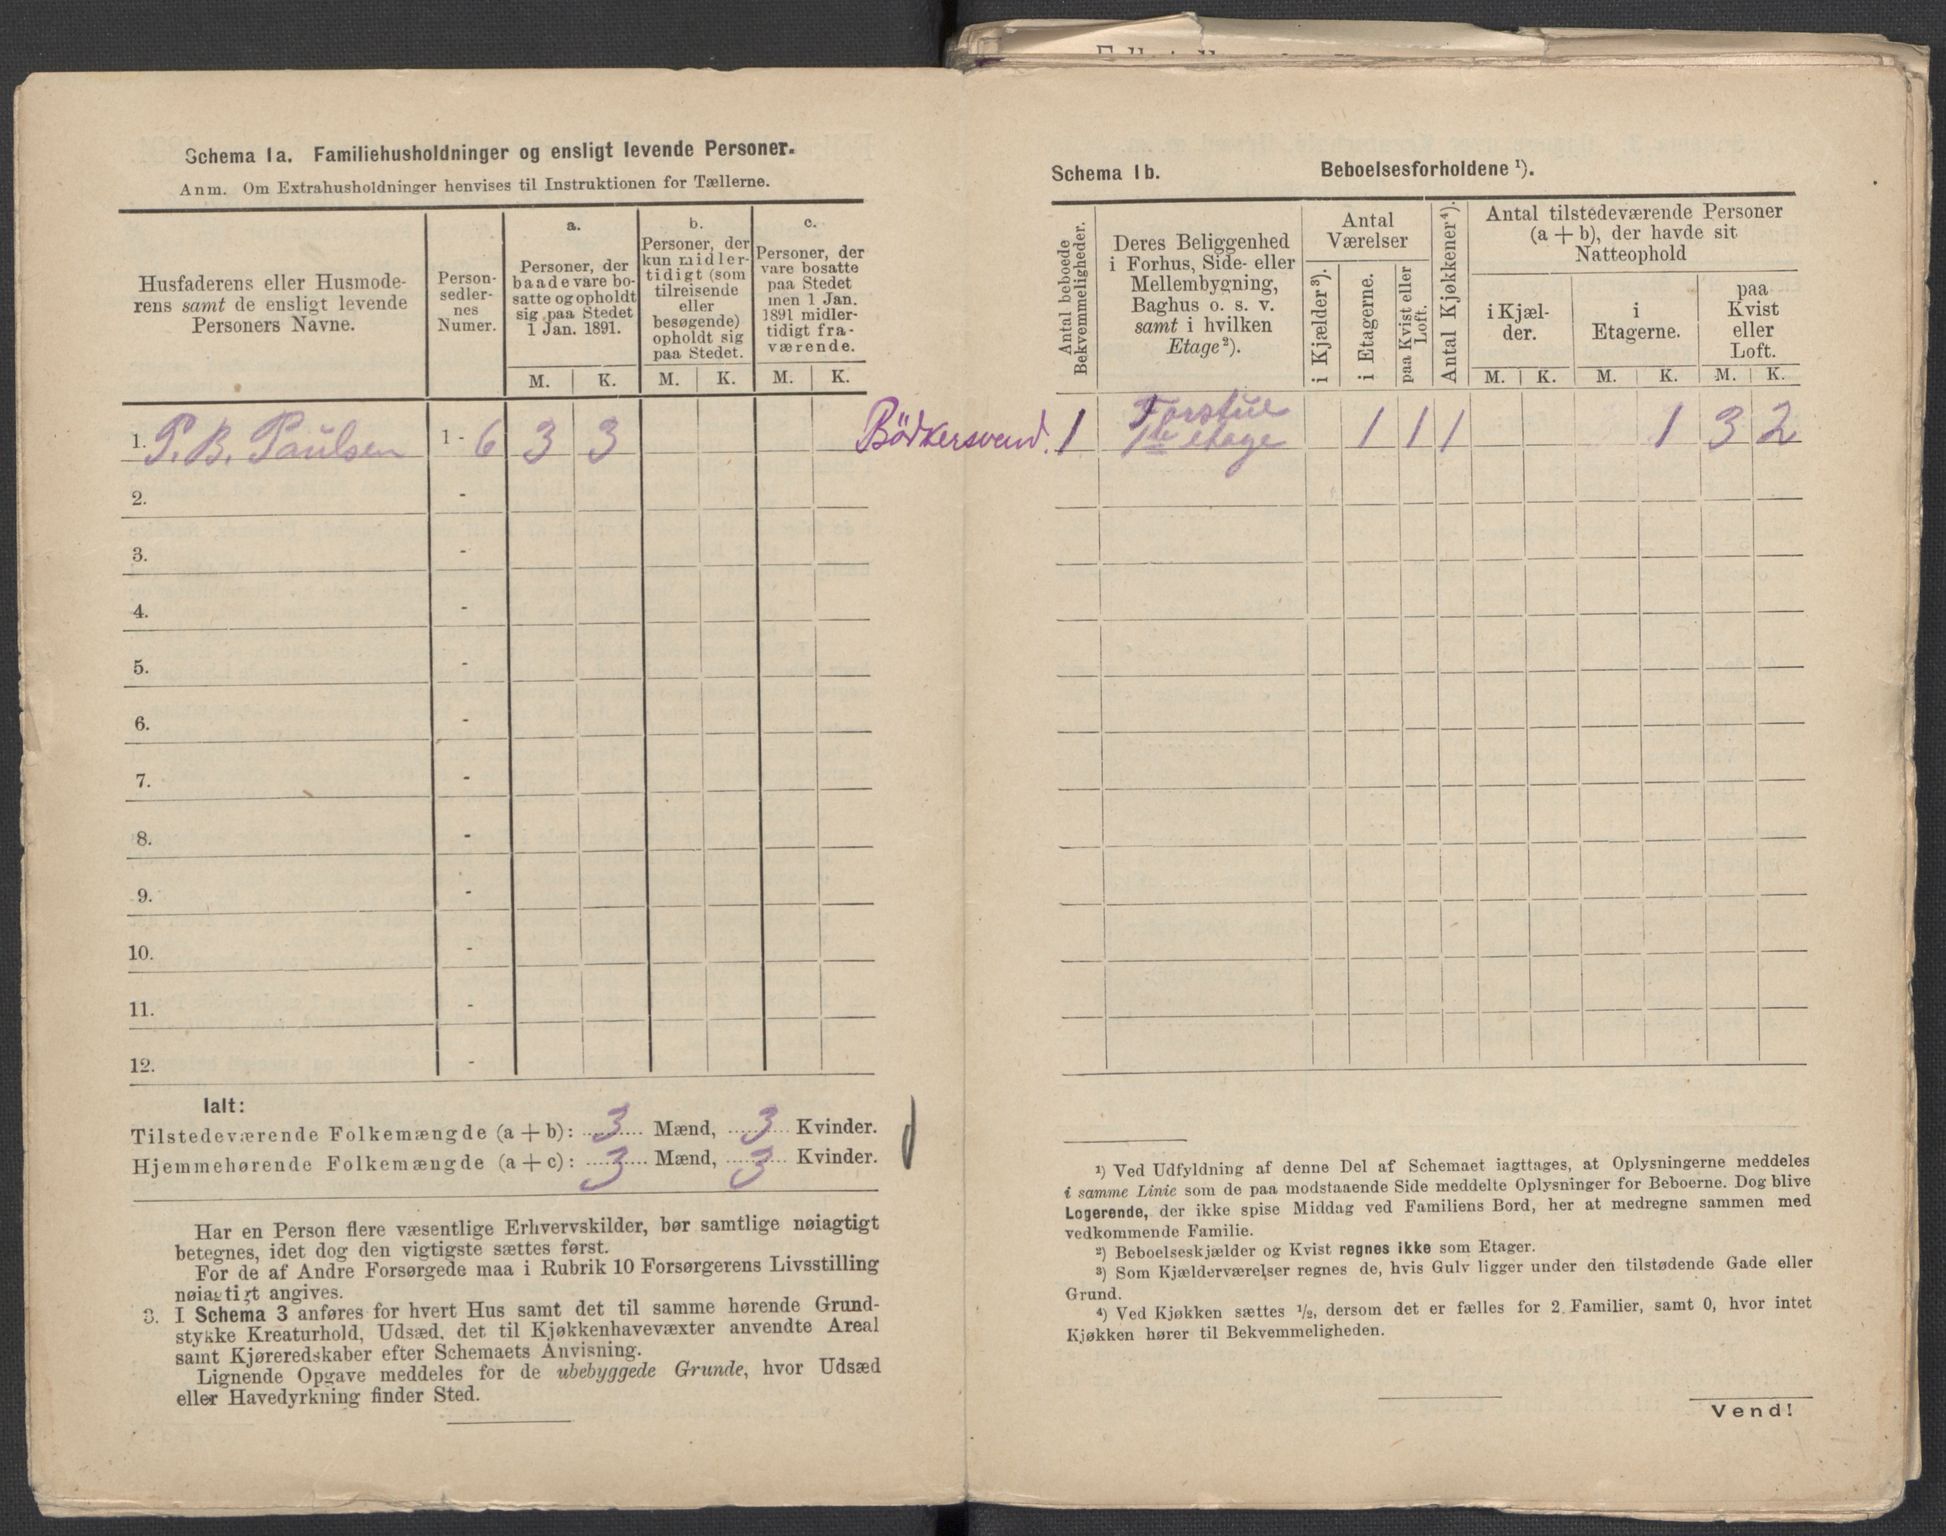 Schema 1a. Familiehusholdninger og ensligt levende Personer.
Anm. Om Extrahusholdninger henvises til Instruktionen for Tællerne.
Husfaderens eller Husmode-
rens samt de ensligt levende
Personers Navne.
Person-
sedler-
nes
Numer.
a.
Personer, der
baade vare bo-
satte og opholdt
sig paa Stedet
1 Jan. 1891.
b.
Personer, der
kun midler-
tidigt (som
tilreisende
eller
besøgende)
opholdt sig
paa Stedet.
c.
Personer, der
vare bosatte
paa Stedet
men 1 Jan.
1891 midler-
tidigt fra-
værende.
M. K. M. K. M. K.
1. P. B. Paulsen 1 - 6 3 3
2. -
3. -
4. -
5. -
6. -
7. -
8. -
9. -
10. -
11. -
12. -
Ialt:
Tilstedeværende Folkemængde (a + b): 3 Mænd, 3 Kvinder.
Hjemmehørende Folkemængde (a + c): 3 Mænd, 3 Kvinder.
Har en Person flere væsentlige Erhvervskilder, bør samtlige nøiagtigt
betegnes, idet dog den vigtigste sættes først.
For de af Andre Forsørgede maa i Rubrik 10 Forsørgerens Livsstilling
nøiagtigt angives.
3. I Schema 3 anføres for hvert Hus samt det til samme hørende Grund-
stykke Kreaturhold, Udsæd, det til Kjøkkenhavevæxter anvendte Areal
samt Kjøreredskaber efter Schemaets Anvisning.
Lignende Opgave meddeles for de ubebyggede Grunde, hvor Udsæd
eller Havedyrkning finder Sted.
Schema 1b. Beboelsesforholdene ¹).
Antal beboede
Bekvemmeligheder.
Deres Beliggenhed
i Forhus, Side- eller
Mellembygning,
Baghus o. s. v.
samt i hvilken
Etage²).
Antal
Værelser
i Kjælder³).
i Etagerne.
paa Kvist eller
Loft.
Antal Kjøkkener⁴).
Antal tilstedeværende Personer
(a + b), der havde sit
Natteophold
i Kjæl-
der.
i
Etagerne.
paa
Kvist
eller
Loft.
M. K. M. K. M. K.
Bödkersvend. 1 Forstue
1te etage 1 1 1 1 3 2
¹) Ved Udfyldning af denne Del af Schemaet iagttages, at Oplysningerne meddeles
i samme Linie som de paa modstaaende Side meddelte Oplysninger for Beboerne. Dog blive
Logerende, der ikke spise Middag ved Familiens Bord, her at medregne sammen med
vedkommende Familie.
²) Beboelseskjælder og Kvist regnes ikke som Etager.
³) Som Kjælderværelser regnes de, hvis Gulv ligger under den tilstødende Gade eller
Grund.
⁴) Ved Kjøkken sættes ½, dersom det er fælles for 2 Familier, samt 0, hvor intet
Kjøkken hører til Bekvemmeligheden.
Vend!